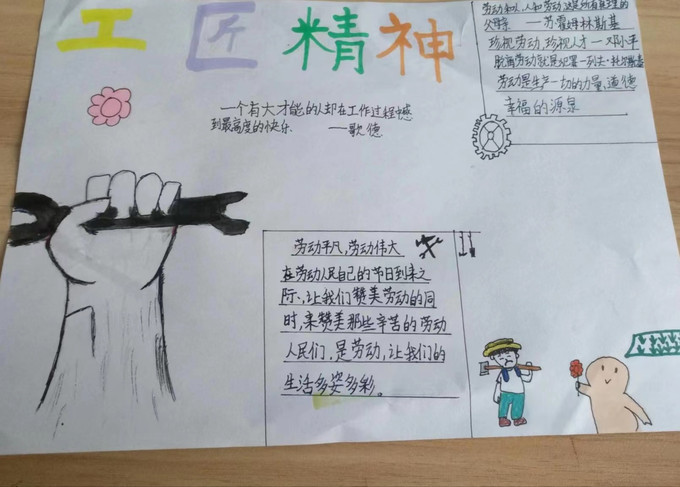 工匠精神
劳动和人,人和劳动,这是所有真理的
父母亲 ——苏霍姆林斯基
珍视劳动,珍视人才 — 邓小平
脱离劳动就是犯罪 —列夫·托尔斯泰
劳动是生产一切的力量,道德
幸福的源泉
一个有大才能的人却在工作过程中感
到最高度的快乐. ——歌德
劳动平凡,劳动伟大
在劳动人民自己的节日到来之
际,让我们赞美劳动的同
时,来赞美那些辛苦的劳动
人民们,是劳动,让我们的
生活多姿多彩。